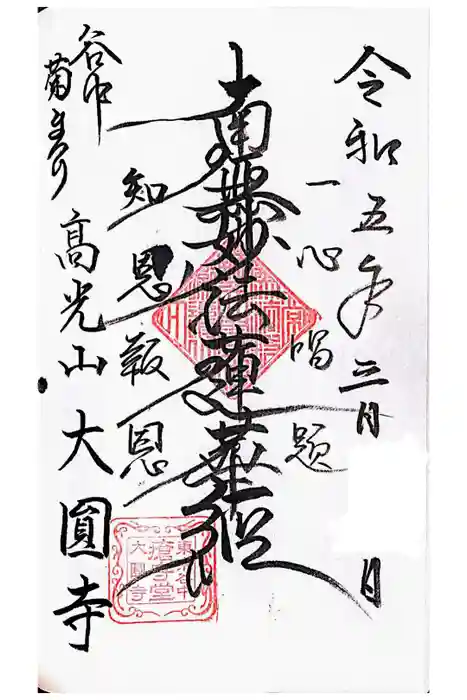 令和五年三月 日
一心唱題
南無妙法蓮華経
知恩報恩
谷中
菊まつり
高光山大圓寺
東京谷中
瘡守堂
大圓寺